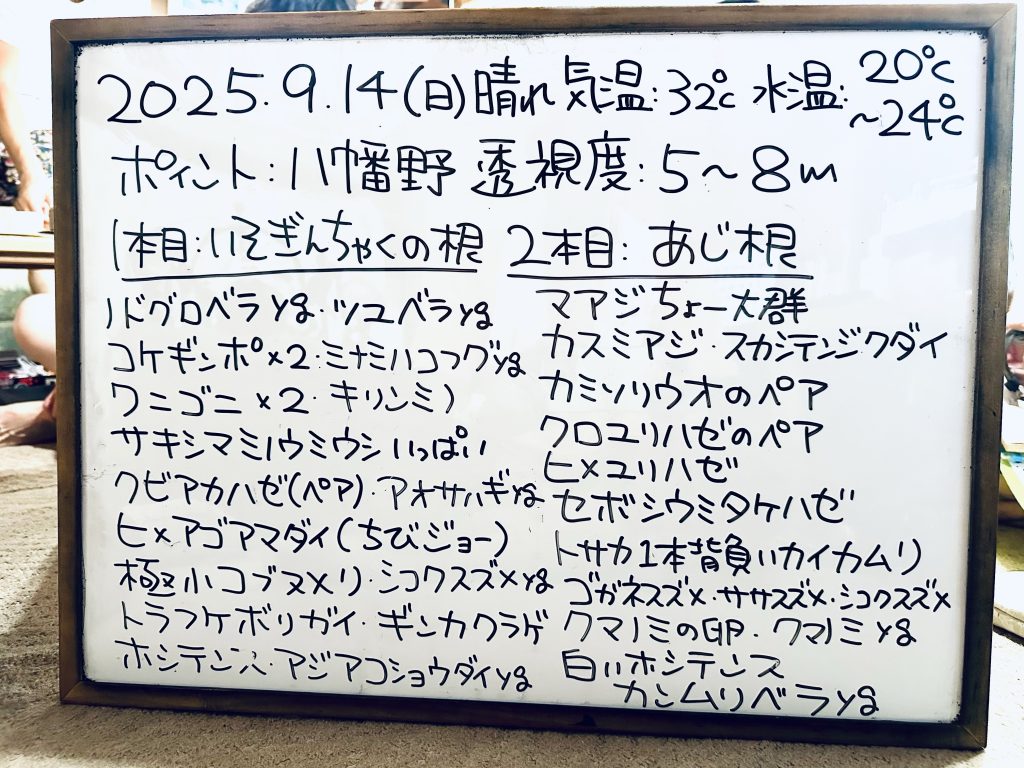 2025.9.14(日)晴れ 気温:32℃ 水温:20℃
~24℃
ポイント:八幡野 透視度:5~8m
1本目:いそぎんちゃくの根
ノドグロベラyg・ツユベラyg
コケギンポ×2・ミナミハコフグyg
ワニゴニ×2・キリンミノ
サキシマミノウミウシいっぱい
クビアカハゼ(ペア)・アオサハギyg
ヒメアゴアマダイ(ちびジョー)
極小コブヌメリ・シコクスズメyg
トラフケボリガイ・ギンカクラゲ
ホシテンス・アジアコショウダイyg
2本目:あじ根
マアジちょー大群
カスミアジ・スカシテンジクダイ
カミソリウオのペア
クロユリハゼのペア
ヒメユリハゼ
セボシウミタケハゼ
トサカ1本背負いカイカムリ
コガネスズメ・ササスズメ・シコクスズメ
クマノミのGP・クマノミyg
白いホシテンス
カンムリベラyg